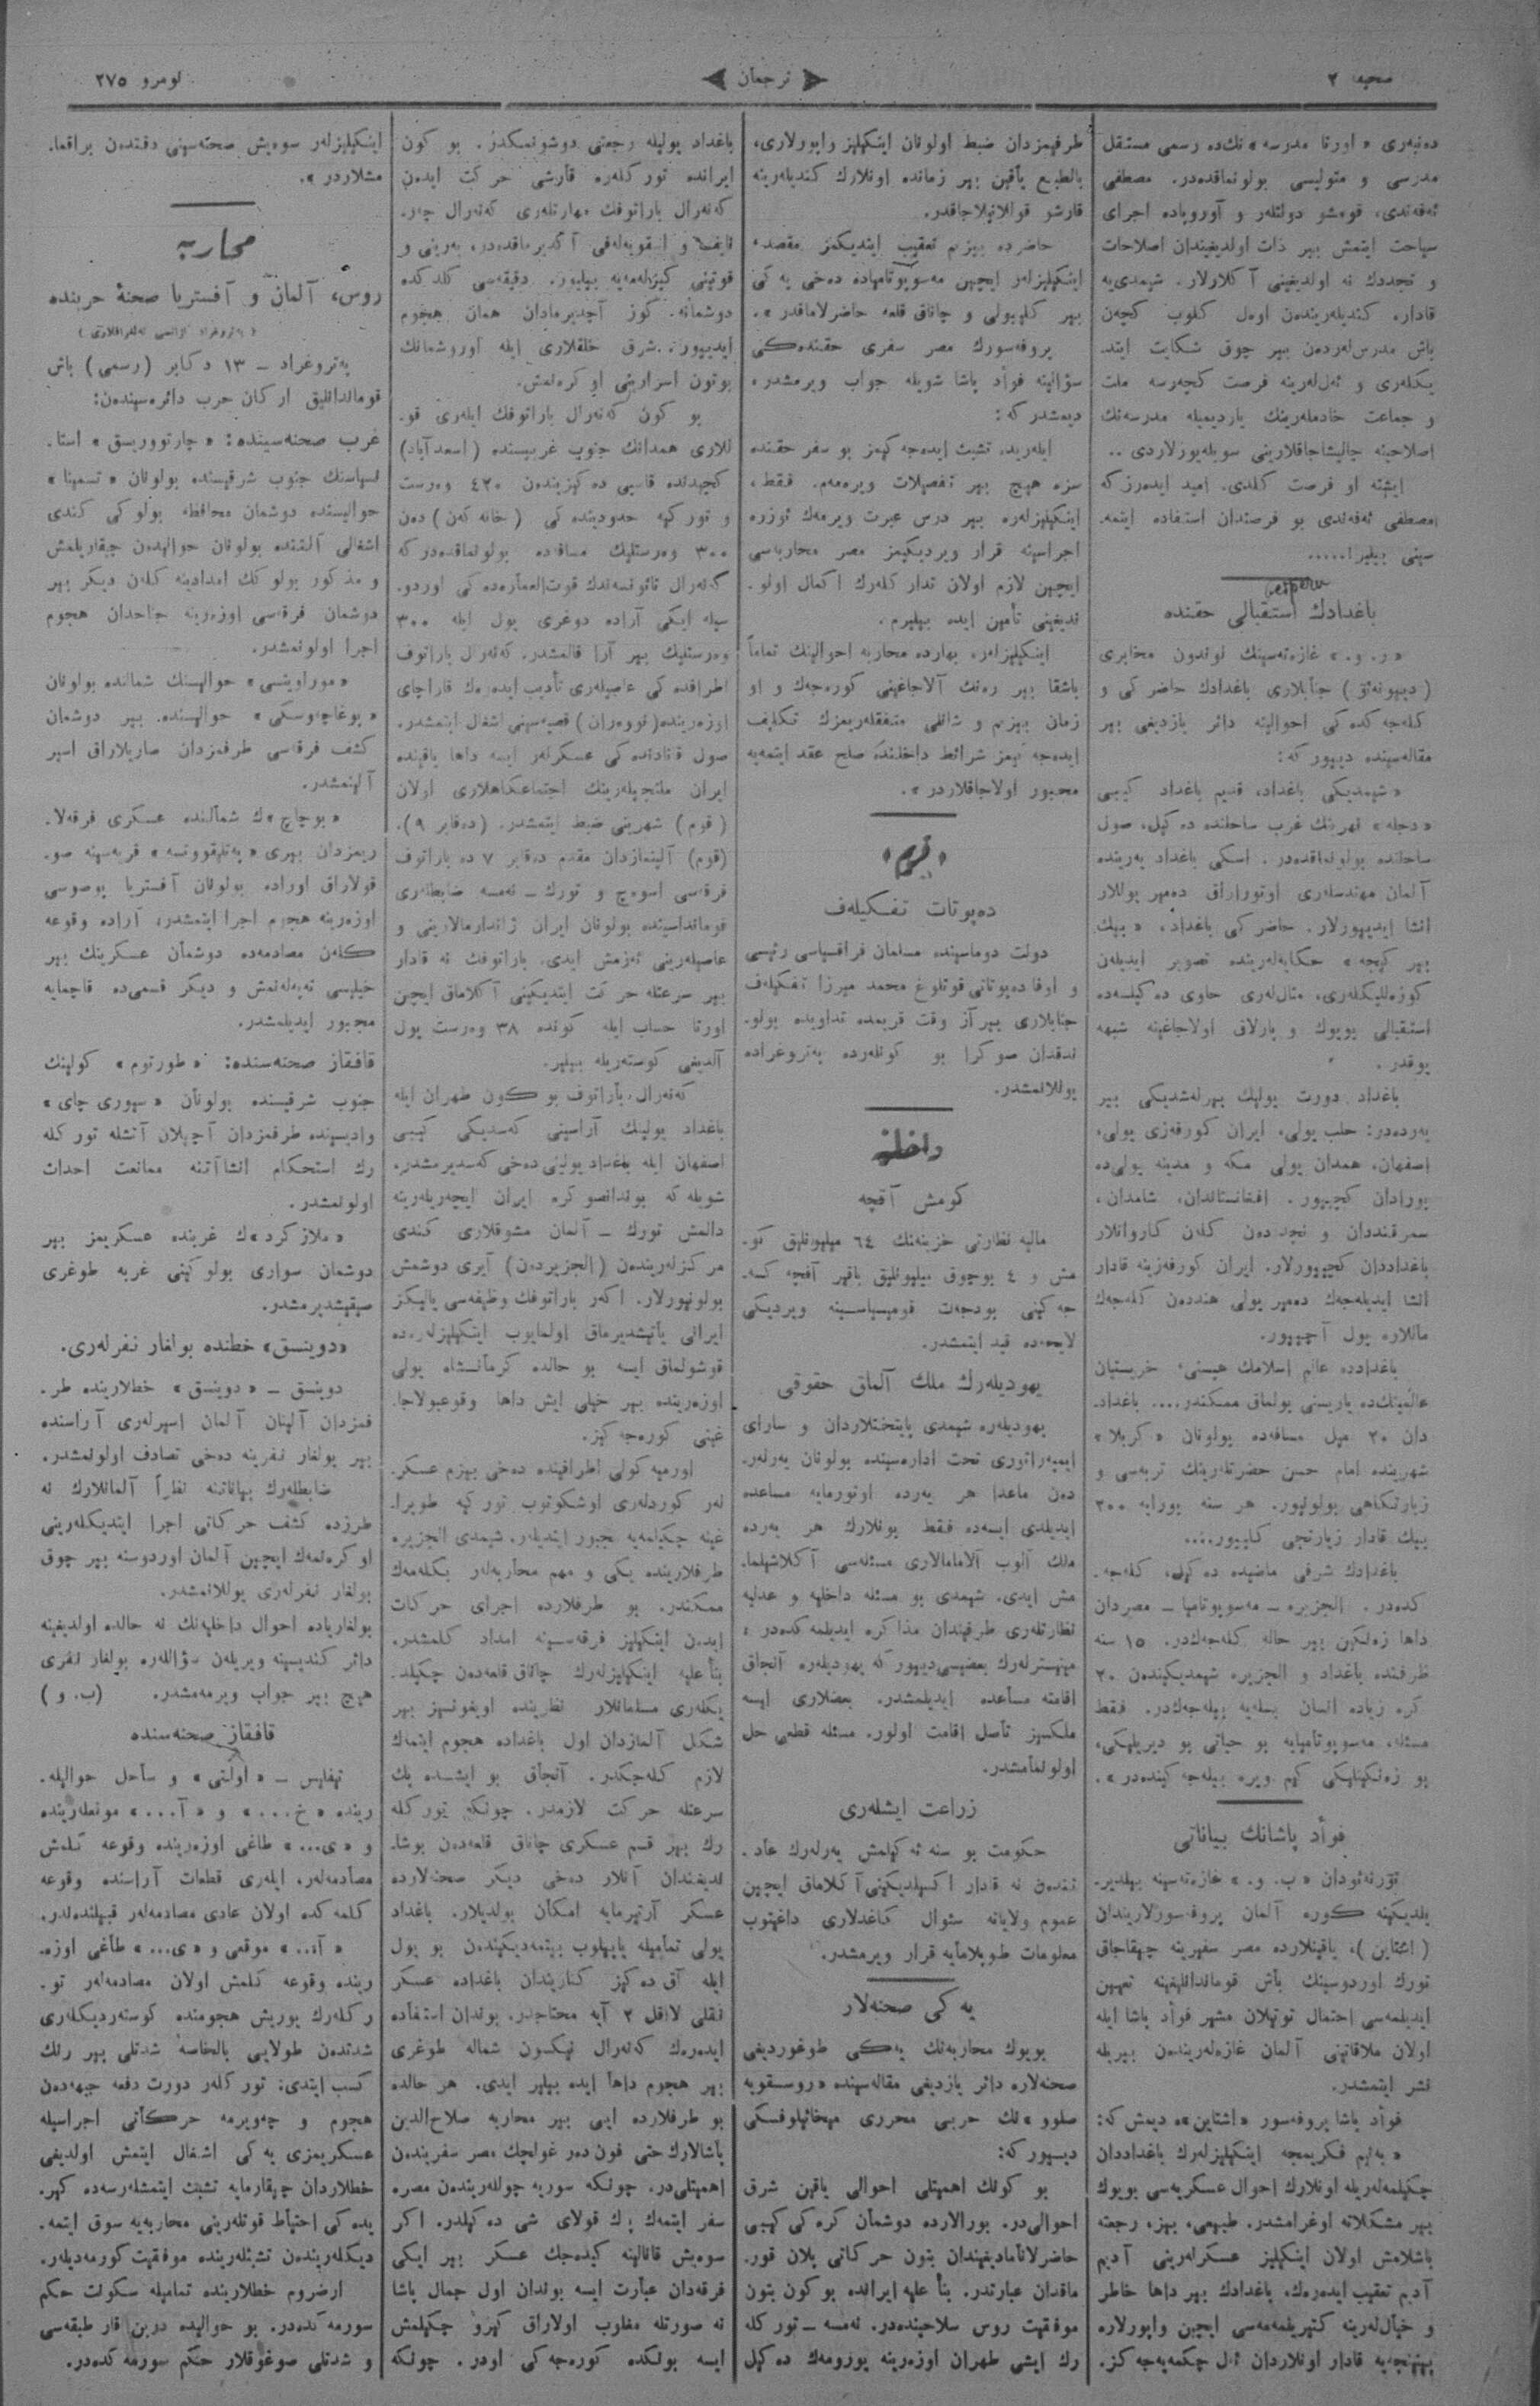 صحیفه ٢
ترجمان
نومرو ٢٧٥
ده‌نبه‌ری «اورتا مدرسه» نك‌ده رسمی مستقل
مدرسی و متولیسی بولونماقده‌در. مصطفی
ئه‌فه‌ندی، قومشو دولتلەر و آوروپاده اجرای
سیاحت ایتمش بیر ذات اولدیغیندان اصلاحات
و تجددك نه اولدیغینی آكلارلار. شیمدی‌یه
قادار، كندیله‌رینده‌ن اوه‌ل كلوب كچه‌ن
باش مدرس‌له‌رده‌ن بیر چوق شكایت ایتد.
یكله‌ری و ئه‌لله‌رینه فرصت كچه‌رسه ملت
و جماعت خادمله‌رینك یاردیمیله مدرسه‌نك
اصلاحینه چالیشاجاقلارینی سویله‌یورلاردی ..
ایشته او فرصت كلدی. امید ایده‌رز كه
مصطفی ئه‌فه‌ندی بو فرصتدان استفاده ایتمه.
سینی بیلیر!.....
باغدادك استقبالی حقنده
«ر. و.» غازه‌ته‌سینك لوندون مخابری
(دییونه‌ئۆ) جنابلاری باغدادك حاضركی و
كله‌جه‌كده‌كی احوالینه دائر یازدیغی بیر
مقاله‌سینده دییور كه:
«شیمدیكی باغداد، قدیم باغداد كیبی
«دجله» نهرینك غرب ساحلنده ده‌كیل، صول
ساحلنده بولونماقده‌در. اسكی باغداد یه‌رینده
آلمان مهندسله‌ری اوتوراراق ده‌میر یوللار
انشا ایدییورلار. حاضركی باغداد، «بیك
بیر كیجه» حكایه‌له‌رینده تصویر ایدیله‌ن
كوزه‌للیكله‌ری، مثال‌له‌ری حاوی ده‌كیلسه‌ده
استقبالی بویوك و پارلاق اولاجاغینه شبهه
یوقدر.
باغداد دورت یولیك بیرله‌شدیكی بیر
یه‌رده‌در: حلب یولی، ایران كورفه‌زی یولی،
اصفهان، همدان یولی مكه و مدینه یولی‌ده
بورادان كچییور. افغانستاندان، شامدان،
سمرقنددان و نجدده‌ن كله‌ن كاروانلار
باغداددان كچییورلار. ایران كورفه‌زینه قادار
انشا ایدیله‌جه‌ك ده‌میر یولی هندده‌ن كله‌جه‌ك
ماللاره یول آچییور.
باغدادده عالم اسلامك هیسنی، خریستیان
عالمینك‌ده یاریسنی بولماق ممكندر.... باغداد.
دان ٢٠ میل مسافه‌ده بولونان «كربلا»
شهرینده امام حسن حضرتله‌رینك تربه‌سی و
زیارتگاهی بولونیور. هر سنه بورایه ٢٠٠
بیك قادار زیارتجی كلییور....
باغدادك شرفی ماضیده ده‌كیل، كله‌جه.
كده‌در. الجزیره ـ مه‌سوپوتامیا ـ مصردان
داها زه‌نكین بیر حاله كله‌جه‌كدر. ١٥ سنه
ظرفنده باغداد و الجزیره شیمدیكینده‌ن ٢٠
كره زیاده انسان بسله‌یه بیله‌جه‌كدر. فقط
مسئله، مه‌سوپوتامیایه بو حیاتی بو دیریلیكی،
بو زه‌نكینلیكی كیم ویره بیله‌جه كینده‌در».
فوأد پاشانك بیاناتی
تۆرنه‌ئودان «ب. و.» غازه‌ته‌سینه بیلدیر.
یلدیكینه كوره آلمان پروفه‌سورلاریندان
(اشتاین)، یاقینلارده مصر سفیرینه چیقاجاق
تورك اوردوسینك باش قومانداانلیغینه تعیین
ایدیلمه‌سی احتمال توتیلان مشیر فوأد پاشا ایله
اولان ملاقاتینی آلمان غازه‌له‌رینده‌ن بیریله
نشر ایتمشدر.
فوأد پاشا پروفه‌سور «اشتاین»ه دیمش كه:
«به‌نیم فكریمجه اینكیلیزله‌رك باغداددان
چكیلمه‌له‌ریله اونلارك احوال عسكریه‌سی بویوك
بیر مشكلاته اوغرامشدر. طبیعی، بیز، رجعته
باشلامش اولان اینكیلیز عسكرله‌رینی آدیم
آدیم تعقیب ایده‌ره‌ك، باغدادك بیر داها خاطر
و خیال‌له‌رینه كتیریلمه‌مه‌سی ایچین وایورلاره
بیتنجه‌یه قادار اونلاردان ئه‌ل چكمه‌یه‌جه كز.
طرفیمزدان ضبط اولونان اینكیلیز واپورلاری،
بالطبع یاقین بیر زمانده اونلارك كندیله‌رینه
قارشو قوللانیلاجاقدر.
حاضرده بیزیم تعقیب ایتدیكمز مقصد،
اینكیلیزله‌ر ایچین مه‌سوپوتامیاده دخی یه كی
بیر كلیبولی و چاناق قلعه حاضرلاماقدر».
پروفه‌سورك مصر سفری حقنده‌كی
سؤالینه فوأد پاشا شویله جواب ویرمشدر
دیمشدر كه:
ایله‌ریده تشبث ایده‌جه كیمز بو سفر حقنده
سزه هیچ بیر تفصیلات ویره‌مم. فقط،
اینكیلیزله‌ره بیر درس عبرت ویرمه‌ك ئوزره
اجراسینه قرار ویردیكیمز مصر محاربه‌سی
ایچین لازم اولان تدار كله‌رك اكمال اولو.
ندیغینی تأمین ایده بیلیرم.
اینكیلیزله‌ر، بهارده محاربه احوالینك تماماً
باشقا بیر ره‌نك آلاجاغینی كوره‌جه‌ك و او
زمان بیزیم و شانلی متفقله‌ریمزك تكلیف
ایده‌جه كیمز شرائط داخلنده صلح عقد ایتمه‌یه
مجبور اولاجاقلاردر».
«قریم»
ده‌پوتات تفكیله‌ف
دولت دوماسینده مسلمان فراقسیاسی رئیسی
و اوفا ده‌پوتاتی قوتلوغ محمد میرزا تفكیله‌ف
جنابلاری بیر آز وقت قریمده تداویده بولو.
ندقدان صوكرا بو كونله‌رده په‌تروغراده
یوللانمشدر.
داخلیه
كومش آقچه
مالیه نظارتی خزینه‌نك ٦٤ میلیونلیق كو.
مش و ٤ بوچوق میلیونلیق باقیر آقچه كسه.
جه كینی بودجه‌ت قومیسیاسینه ویردیكی
لایحه‌ده قید ایتمشدر.
یهودیله‌رك ملك آلماق حقوقی
یهودیله‌ره شیمدی پایتختلاردان و سارای
ایمپه‌راتوری تحت اداره‌سینده بولونان یه‌رله‌ر.
ده‌ن ماعدا هر یه‌رده اوتورمایه مساعده
ایدیلدی ایسه‌ده فقط بونلارك هر یه‌رده
ملك آلوب آلامامالاری مسئله‌سی آكلاشیلما.
مش ایدی. شیمدی بو مسئله داخلیه و عدلیه
نظارتله‌ری طرفیندان مذاكره ایدیلمه كده‌در؛
مینیسترله‌رك بعضیسی‌دییور كه یهودیله‌ره آنجاق
اقامته مساعده ایدیلمشدر. بعضلاری ایسه
ملكسیز ناصل اقامت اولور. مسئله قطعی حل
اولونمامشدر.
زراعت ایشله‌ری
حكومت بو سنه ئه كیلمش یه‌رله‌رك عاد.
تنده‌ن نه قادار اكسیلدیكینی آكلاماق ایچین
عموم ولایاته سئوال كاغدلاری داغیتوب
معلومات طوپلامایه قرار ویرمشدر.
یه كی صحنه‌لار
بویوك محاربه‌نك یه‌كی طوغوردیغی
صحنه‌لاره دائر یازدیغی مقاله‌سینده «روسسقویه
صلوو»نك حربی محرری میخائیلوفسكی
دییور كه:
بو كونك اهمیتلی احوالی یاقین شرق
احوالی‌در. بورالارده دوشمأن كره‌كی كیبی
حاضرلانامادیغیندان بتون حركاتی پلان قور.
ماقدان عبارتدر. بنأ علیه ایرانده بو كون بتون
موفقیت روس سلاحینده‌در. نه‌مسه ـ تورك‌له
رك ایشی طهران اوزه‌رینه یورومه‌ك ده كیل
باغداد یولیله رجعتی دوشونمكدر. بو كون
ایرانده توركله‌ره قارشی حركت ایده‌ن
كه‌نه‌رال باراتوفك مهارتله‌ری كه‌نه‌رال چه‌ر.
نایف و اسقوبه‌له‌فی آكدیرماقده‌در، یه‌رینی و
قوتینی كیزله‌مه‌یه بیلیور. دقیقه‌سی كلدكده
دوشمانه كوز آچدیرمادان همان هجوم
ایدییور. شرق خلقلاری ایله اوروشمانك
بوتون اسرارینی اوكره‌نمش.
بو كون كه‌نه‌رال باراتوفك ایله‌ری قو.
للاری همدانك جنوب غربیسنده (اسعدآباد)
كچیدنده قاسپی ده‌كیزینده‌ن ٤٢٠ وه‌رست
و توركیه حدودینده‌كی (خانه‌كه‌ن) ده‌ن
٣٠٠ وه‌رستلیك مسافه‌ده بولونماقده‌در كه
كه‌نه‌رال تائونسه‌ندك قوت‌العماره‌ده‌كی اوردو.
سیله ایكی آراده دوغری یول ایله ٣٠٠
وه‌رستلیك بیر آرا قالمشدر. كه‌نه‌رال باراتوف
اطرافده‌كی عاصیله‌ری تأدیب ایده‌ره‌ك قاراچای
اوزه‌رینده (نووه‌ران) قصبه‌سینی اشغال ایتمشدر.
صول قانادنده‌كی عسكرله‌ر ایسه داها یاقینده
ایران ملتجیله‌رینك اجتماعگاهلاری اولان
(قوم) شهرینی ضبط ایتمشدر. (ده‌قابر ٩).
(قوم) آلینمازدان مقدم ده‌قابر ٧ ده باراتوف
فرقه‌سی اسوه‌ج و تورك ـ نه‌مسه ضابطله‌ری
قومانداسینده بولونان ایران ژاندارمالارینی و
عاصیله‌رینی ئه‌زمش ایدی. باراتوفك نه قادار
بیر سرعتله حركت ایتدیكینی آكلاماق ایچین
اورتا حساب ایله كونده ٣٨ وه‌رست یول
آلدیغی كوسته‌ریله بیلیر.
كه‌نه‌رال باراتوف بو كون طهران ایله
باغداد یولینك آراسینی كه‌سدیكی كیبی
اصفهان ایله بغداد یولینی دخی كه‌سدیرمشدر،
شویله كه بوندانصوكره ایران ایچه‌ریله‌رینه
دالمش تورك ـ آلمان مشوقلاری كندی
مركزله‌رینده‌ن (الجزیرده‌ن) آیری دوشمش
بولونیورلار. اكه‌ر باراتوفك وظیفه‌سی یالیكز
ایرانی یاتیشدیرماق اولمایوب اینكیلیزله‌ره‌ده
قوشولماق ایسه بو حالده كرمانشاه یولی
اوزه‌رینده بیر خیلی ایش داها وقوعبولاجا.
غینی كوره‌جه كیز.
اورمیه كولی اطرافینده دخی بیزم عسكر.
له‌ر كوردله‌ری اوشكوتوب توركیه طوپرا.
غینه چكیلمه‌یه مجبور ایتدیله‌ر. شیمدی الجزیره
طرفلارینده یكی و مهم محاربه‌له‌ر بكله‌مه‌ك
ممكندر. بو طرفلارده اجرای حركات
ایده‌ن اینكیلیز فرقه‌سینه امداد كلمشدر.
بنأ علیه اینكیلیزله‌رك چاناق قلعه‌ده‌ن چكیلد.
یكله‌ری مسلمانلار نظرینده اویغونسیز بیر
شكل آلمازدان اول باغداده هجوم ایتمه‌ك
لازم كله‌جكدر. آنجاق بو ایشده پك
سرعتله حركت لازمدر. چونكه توركله
رك بیر قسم عسكری چاناق قلعه‌ده‌ن بوشا.
ندیغندان آنلار دخی دیكر صحنه‌لارده
عسكر آرتیرمایه امكان بولدیلار. باغداد
یولی تمامیله یاپیلوب بیتمه‌دیكینده‌ن بو یول
ایله آق ده‌كیز كناریندان باغداده عسكر
نقلی لااقل ٢ آیه محتاجدر. بوندان استفاده
ایده‌ره‌ك كه‌نه‌رال نیكسون شماله طوغری
بیر هجوم داها ایده بیلیر ایدی. هر حالده
بو طرفلارده ایی بیر محاربه صلاح‌الدین
پاشالارك حتی فون ده‌ر غولچك مصر سفرینده‌ن
اهمیتلی‌در. چونكه سوریه چولله‌رینده‌ن مصره
سفر ایتمه‌ك پك قولای شی ده‌كیلدر. اكر
سوه‌یش قانالینه كیده‌جك عسكر بیر ایكی
فرقه‌دان عبارت ایسه بوندان اول جمال پاشا
نه صورتله مغلوب اولاراق كیرو چكیلمش
ایسه بونكده كوره‌جه‌كی اودر. چونكه
اینكیلیزله‌ر سوه‌یش صحنه‌سینی دقتده‌ن براقما.
مشلاردر».
محاربه
روس، آلمان و آفستریا صحنهٔ حربنده
(په‌تروغراد آژانسی ته‌له‌غرافلاری)
په‌تروغراد ـ ١٣ دكابر (رسمی) باش
قوماندانلیق اركان حرب دائره‌سینده‌ن:
غرب صحنه‌سینده: «چارتووریسق» استا.
نسیاسنك جنوب شرقیسنده بولونان «تسمینا»
حوالیسنده دوشمان محافظه بولوكی كندی
اشغالی آلتنده بولونان حوالیدن چیقاریلمش
و مذكور بولوكك امدادینه كله‌ن دیكر بیر
دوشمان فرقه‌سی اوزه‌رینه جناحدان هجوم
اجرا اولونمشدر.
«موراویتسی» حوالیسنك شمالنده بولونان
«بوغاچه‌وسكی» حوالیسنده، بیر دوشمان
كشف فرقه‌سی طرفمزدان صاریلاراق اسیر
آلینمشدر.
«بوچاچ»ك شمالنده عسكری فرقه‌لا.
ریمزدان بیری «په‌تلیقووتسه» قریه‌سینه صو.
قولاراق اوراده بولونان آفستریا پوصوسی
اوزه‌رینه هجوم اجرا ایتمشدر، آراده وقوعه
كله‌ن مصادمه‌ده دوشمان عسكرینك بیر
خیلیسی ته‌په‌له‌نمش و دیكر قسمی‌ده قاچمایه
مجبور ایدیلمشدر.
قافقاز صحنه‌سنده: «طورتوم» كولینك
جنوب شرقیسنده بولونان «سیوری چای»
وادیسینده طرفمزدان آچیلان آتشله توركله
رك استحكام انشاآتنه ممانعت احداث
اولونمشدر.
«ملازكرد»ك غربنده عسكریمز بیر
دوشمان سواری بولوكینی غربه طوغری
صیقیشدیرمشدر.
«دوینسق» خطنده بولغار نفرله‌ری.
دوینسق ـ «دوینسق» خطلارینده طر.
فمزدان آلینان آلمان اسیرله‌ری آراسنده
بیر بولغار نفرینه دخی تصادف اولونمشدر.
ضابطله‌رك بیاناتنه نظراً آلمانلارك نه
طرزده كشف حركاتی اجرا ایتدیكله‌رینی
اوكره‌نمه‌ك ایچین آلمان اوردوسنه بیر چوق
بولغار نفرله‌ری یوللانمشدر.
بولغاریاده احوال داخلیه‌نك نه حالده اولدیغینه
دائر كندیسینه ویریله‌ن سؤالله‌ره بولغار نفری
هیچ بیر جواب ویرمه‌مشدر. (ب. و)
قافقاز صحنه‌سنده
تیفلیس ـ «اولتی» و ساحل حوالیله.
رینده «خ...» و «آ...» موقعله‌رینده
و «ی...» طاغی اوزه‌رینده وقوعه كلمش
مصادمه‌له‌ر، ایله‌ری قطعات آراسنده وقوعه
كلمه كده اولان عادی مصادمه‌له‌ر قبیلنده‌ندر.
«آ...» موقعی و «ی...» طاغی اوزه.
رینده وقوعه كلمش اولان مصادمه‌له‌ر تو.
ركله‌رك یوریش هجومنده كوسته‌ردیكله‌ری
شدتدن طولایی بالخاصه شدتلی بیر رنك
كسب ایتدی: توركله‌ر دورت دفعه جبهه‌ده‌ن
هجوم و چه‌ویرمه حركاتی اجراسیله
عسكریمزی یه كی اشغال ایتمش اولدیغی
خطلاردان چیقارمایه تشبث ایتمشله‌رسه‌ده كیر.
یده‌كی احتیاط قوتله‌رینی محاربه‌یه سوق ایتمه.
دیكله‌رینده‌ن تشبثله‌رینده موفقیت كورمه‌دیله‌ر.
ارضروم خطلارینده تمامیله سكوت حكم
سورمه كده‌در. بو حوالیده درین قار طبقه‌سی
و شدتلی صوغوقلار حكم سورمه كده‌در.